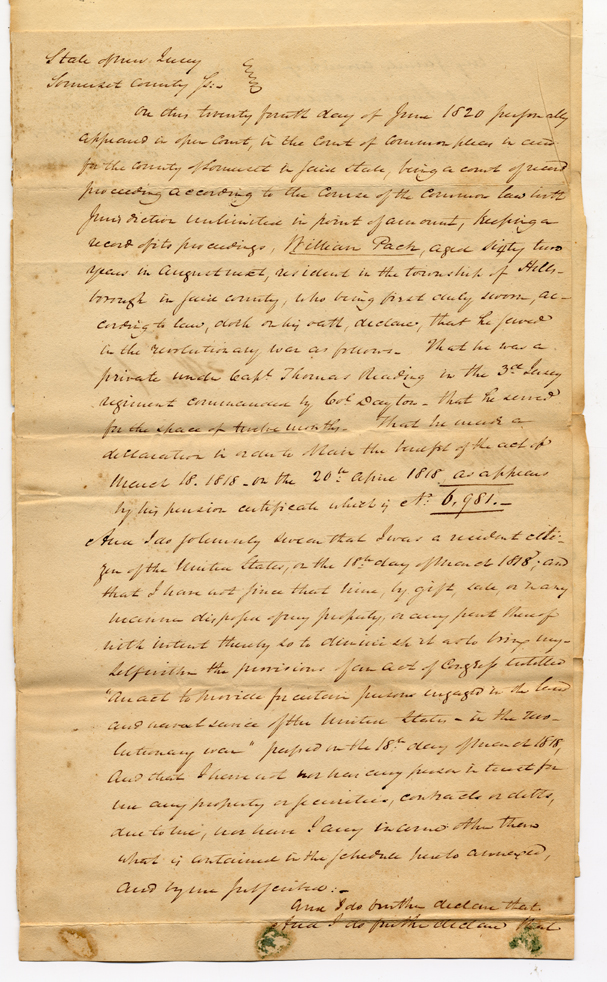 State of new Jersey
Somerset County Ss:-
On this twenty fourth day of June 1820 personally
appeared in open Court, in the Court of Common pleas in and
for the County of Somerset in said state, being a court of record
proceeding according to the Course of the Common law with
Jurisdiction unlimited in point of amount, keeping a
record of its proceedings, William Pack, aged sixty two
years in August next, resident in the township of Hills-
borough in said county, who being first duly sworn, ac-
cording to law, doth on his oath, declare, that he served
in the revolutionary war as follows - That he was a
private under Capt. Thomas Reading in the 3rd Jersey
regiment commanded by Col. Dayton - that he served
for the space of twelve months - That he made a
declaration in order to obtain the benefit of the act of
March 18. 1818 - on the 20th april 1818 as appears
by his pension certificate which is No. 6,981.-
And I do solemnly swear that I was a resident citi-
zen of the United States, on the 18th day of March 1818; and
that I have not since that time, by gift, sale, or in any
manner disposed of my property, or any part thereof
with intent thereby so to diminish it as to bring my-
self within the provisions of an act of Congress entitled
"An act to provide for certain persons engaged in the land
and naval service of the United States - in the rev-
lutionary war" passed on the 18th day of March 1818,
And that I have not nor has any person in trust for
me any property or securities, contracts or debts,
due to me, nor have I any income other than
what is contained in the schedule hereto annexed,
and by me subscribed:-
And I do further declare that
And I do further declare that